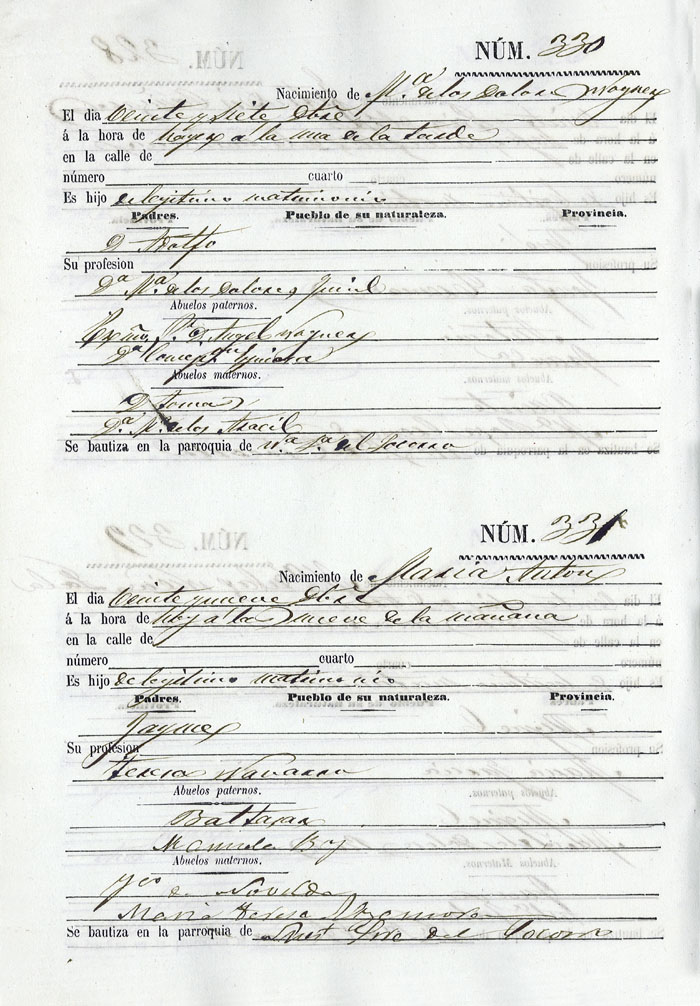 NÚM. 330
Nacimiento de Mª. de los Dolores Wagner
El dia Veinte y siete Dbre
á la hora de hoy a la una de la tarde
en la calle de
número cuarto
Es hijo de legitimo matrimonio
Padres. Pueblo de su naturaleza. Provincia.
D Adolfo
Su profesion
Dª Mª. de los Dolores
Abuelos paternos.
Exmo. Sr. D. Angel Wagner
Dª
Abuelos maternos.
D Tomas
Dª. Mª. de los
Se bautiza en la parroquia de Nª. Sª. del Socorro
NÚM. 331
Nacimiento de Maria Anton
El dia Veinte y nueve Dbre
á la hora de hoy á las nueve de la mañana
en la calle de
número cuarto
Es hijo de legitimo matrimonio
Padres. Pueblo de su naturaleza. Provincia.
Jayme
Su profesion
Teresa Navarro
Abuelos paternos.
Baltasar
Manuela
Abuelos maternos.
de Novelda
Maria Teresa
Se bautiza en la parroquia de del Socorro